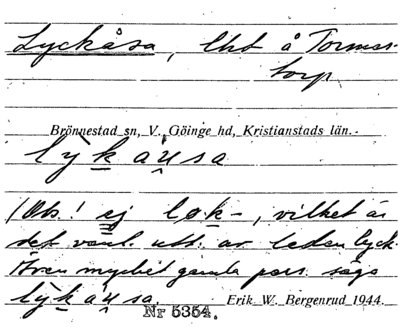 Lyckåsa, lht å Tormas-
torp
Brönnestad sn, V. Göinge hd, Kristianstads län.
lỳk aụsa
(Obs.! ej løk-, vilket är
det vanl. utt. av leden lyck-
Även mycket gamla pers. säga
lỳk áụsa. Erik W. Bergenrud 1944.
Nr 5354.